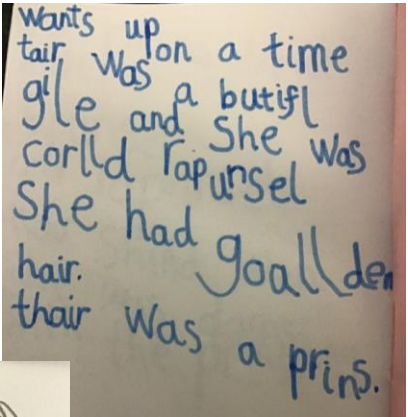 wants upon a time
tair was a butifl
gile and She was
corlld rapunsel
She had goallden
hair.
thair was a prins.